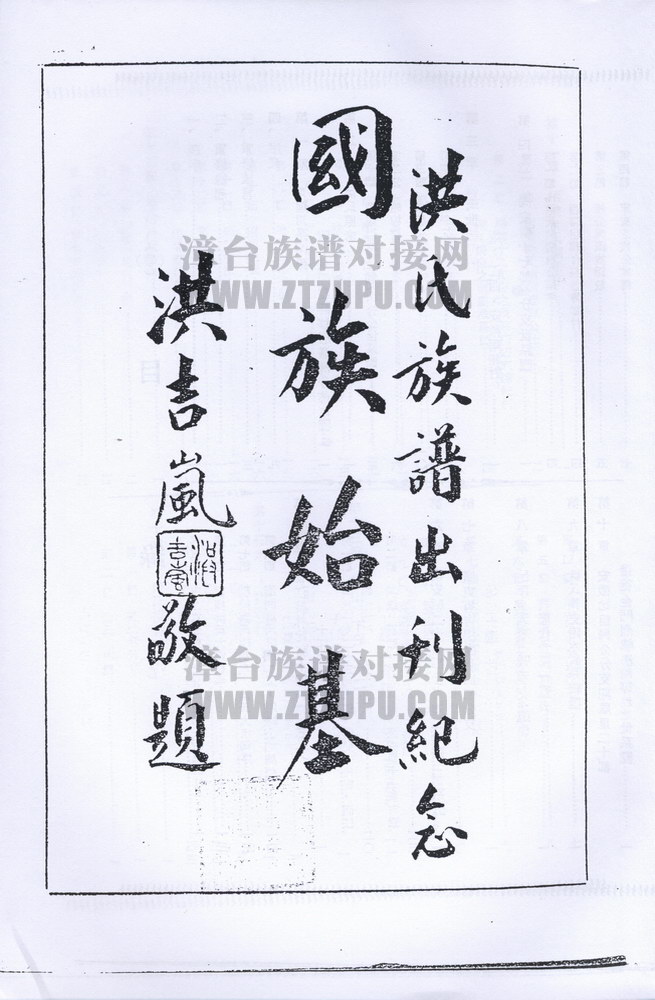 洪氏族譜出刊紀念
國族始基
洪吉嵐敬題
漳台族谱对接网
WWW.ZTZUPU.COM
漳台族谱对接网
WWW.ZTZUPU.COM